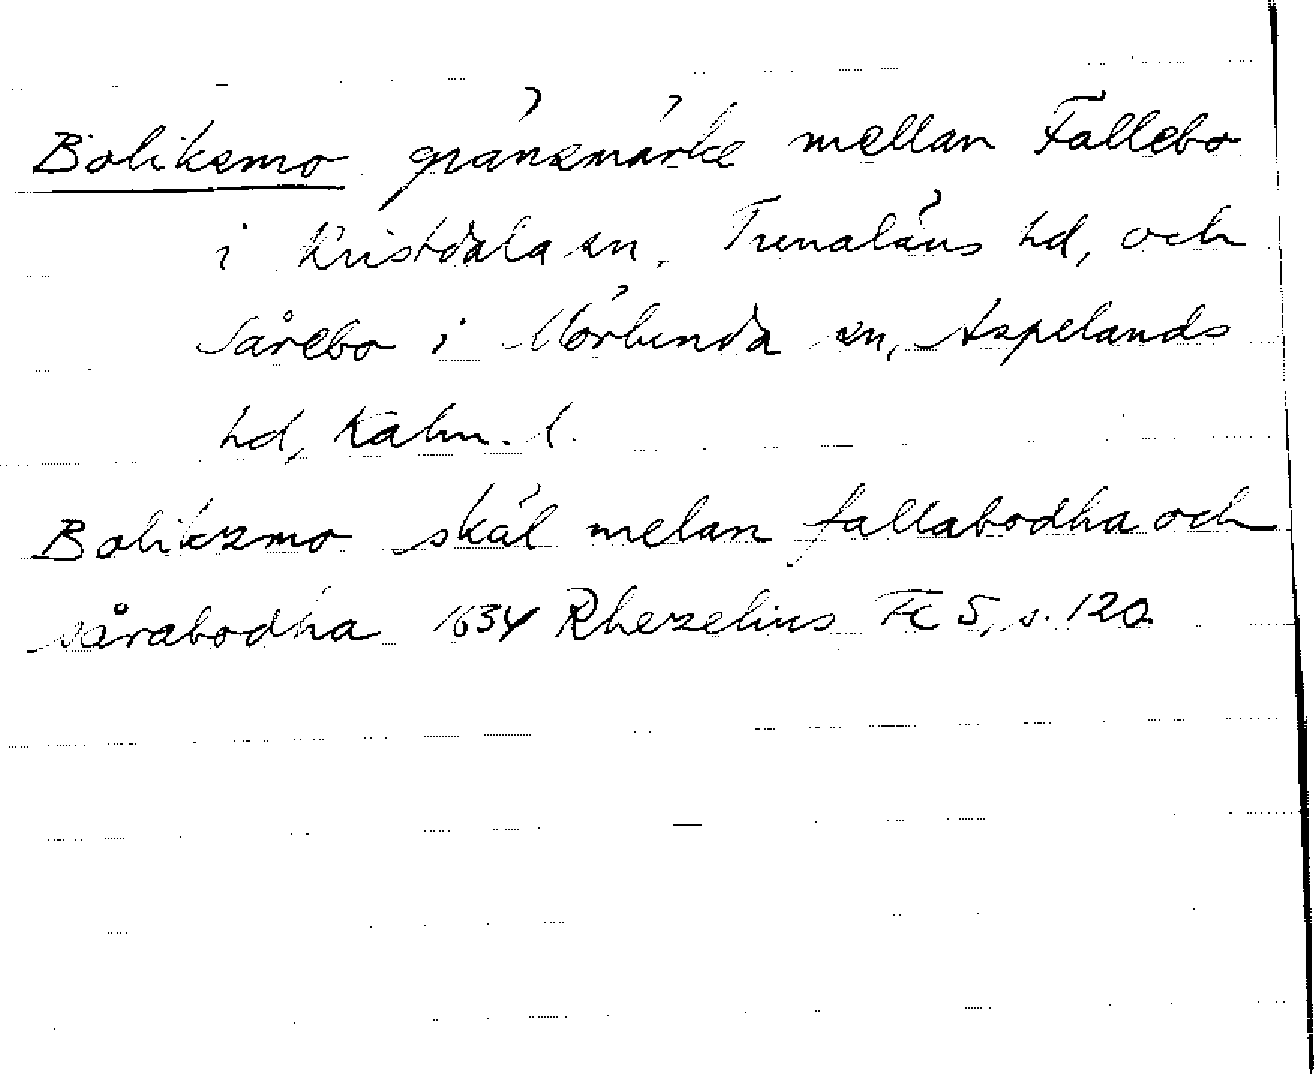 Boliksmo gränsmärke mellan Fallebo
i Kristdala sn, Tunaläns hd, och
Sårebo i Mörlunda sn, Aspelands
hd, Kalm. l.
Bolikszmo skäl melan fallabodha och
sårabodha 1634 Rhezelius Fc 5, s. 120